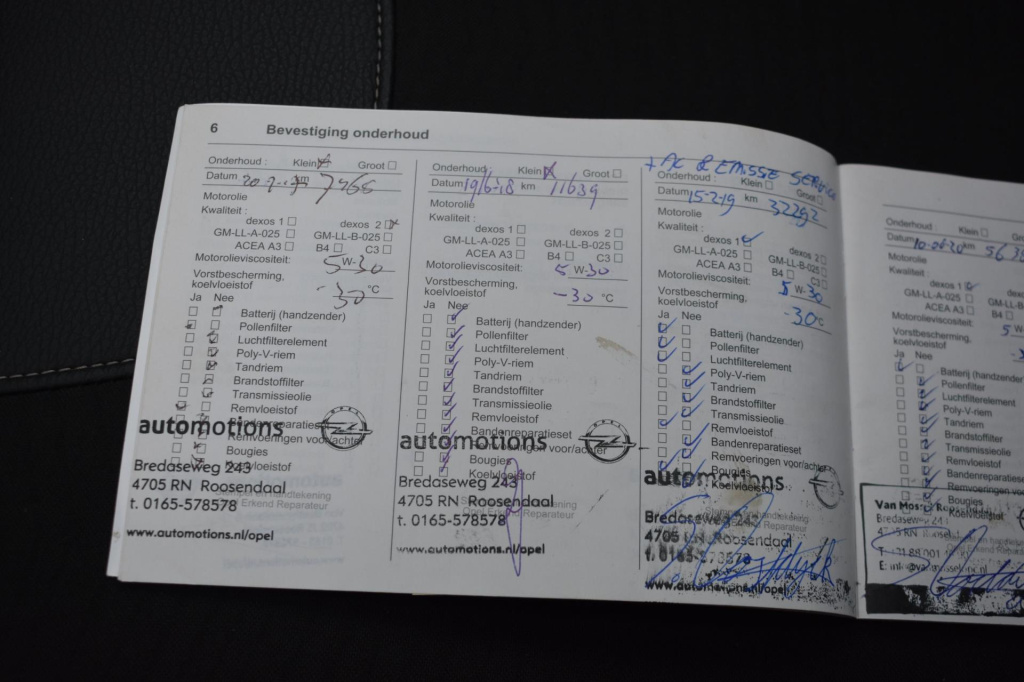 6 Bevestiging onderhoud
Onderhoud : Klein Groot
Datum km
Motorolie
Kwaliteit :
dexos 1 dexos 2
GM-LL-A-025 GM-LL-B-025
ACEA A3 B4 C3
Motorolieviscositeit: 5 W-30
Vorstbescherming,
koelvloeistof -30 °C
Ja Nee
Batterij (handzender)
Pollenfilter
Luchtfilterelement
Poly-V-riem
Tandriem
Brandstoffilter
Transmissieolie
Remvloeistof
Bandenreparatieset
Remvoeringen voor/achter
Bougies
Koelvloeistof
automotions
Bredaseweg 243
4705 RN Roosendaal
Erkend Reparateur
t. 0165-578578
www.automotions.nl/opel
Onderhoud: Klein Groot
Datum 19/6-18 km 11639
Motorolie
Kwaliteit :
dexos 1 dexos 2
GM-LL-A-025 GM-LL-B-025
ACEA A3 B4 C3
Motorolieviscositeit: 5 W-30
Vorstbescherming,
koelvloeistof -30 °C
Ja Nee
Batterij (handzender)
Pollenfilter
Luchtfilterelement
Poly-V-riem
Tandriem
Brandstoffilter
Transmissieolie
Remvloeistof
Bandenreparatieset
Remvoeringen voor/achter
Bougies
Koelvloeistof
automotions
Bredaseweg 243
4705 RN Roosendaal
Erkend Reparateur
t. 0165-578578
www.automotions.nl/opel
Klein Groot
Datum 15-2-19 km 32292
Motorolie
Kwaliteit :
dexos 1 dexos 2
GM-LL-A-025 GM-LL-B-025
ACEA A3 B4 C3
Motorolieviscositeit: 5 W-30
Vorstbescherming,
koelvloeistof -30 °C
Ja Nee
Batterij (handzender)
Pollenfilter
Luchtfilterelement
Poly-V-riem
Tandriem
Brandstoffilter
Transmissieolie
Remvloeistof
Bandenreparatieset
Remvoeringen voor/achter
Bougies
Koelvloeistof
automotions
Bredaseweg 243
4705 RN Roosendaal
www.automotions.nl/opel
Onderhoud : Klein
Datum km
Motorolie
Kwaliteit :
dexos 1
GM-LL-A-025
ACEA A3
Motorolieviscositeit: 5
Vorstbescherming,
koelvloeistof
Ja Nee
Batterij (handzender)
Pollenfilter
Luchtfilterelement
Poly-V-riem
Tandriem
Brandstoffilter
Transmissieolie
Remvloeistof
Bandenreparatieset
Remvoeringen
Bougies
Koelvloeistof